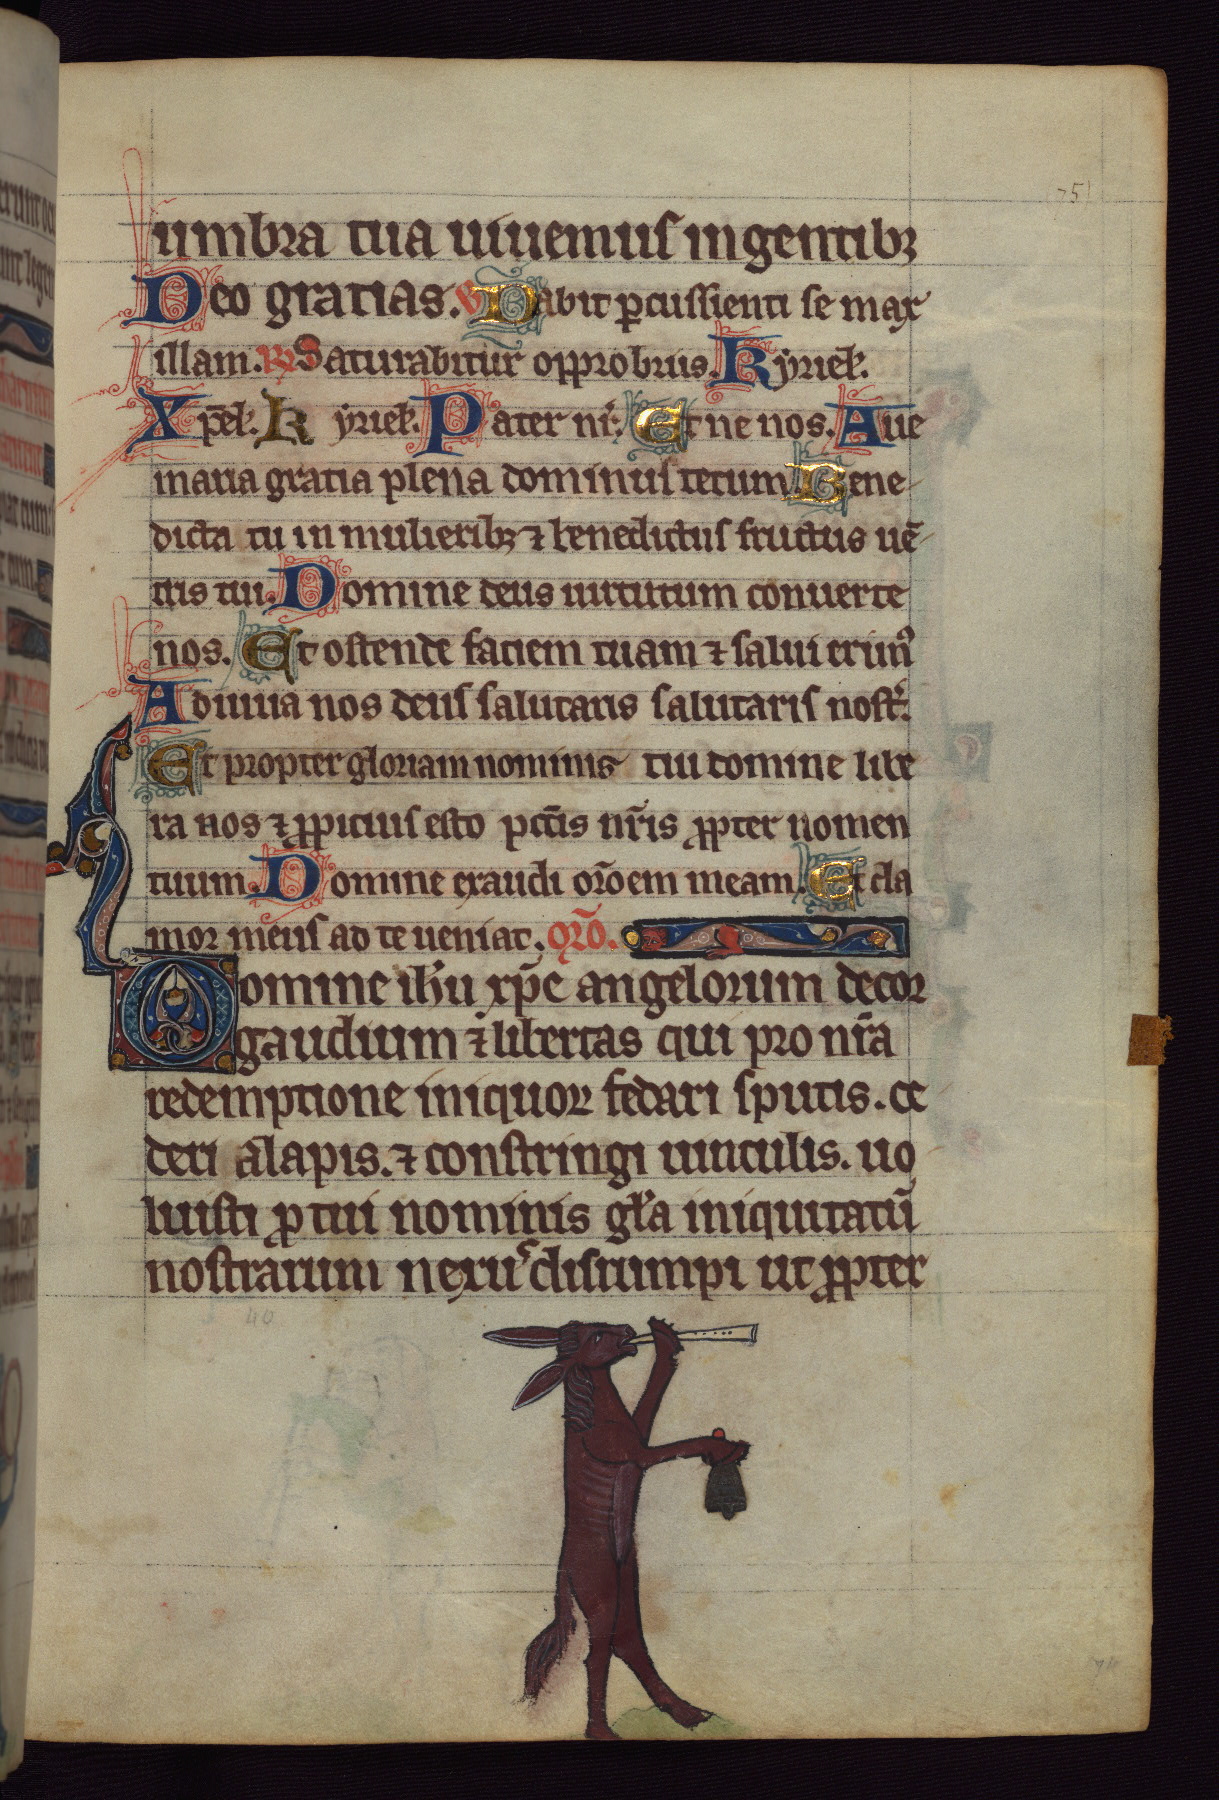 75
umbra tua uiuemus in gentibꝫ
Deo gratias. ℣ Dabit ꝑcussienti se max
illam. ℟ Saturabitur opprobriis. Kyriel̄.
Xp̄el̄. Kyriel̄. Pater nr̄. Et ne nos. Aue
maria gratia plena dominus tecum. Bene
dicta tu in mulieribꝫ ⁊ benedictus fructus uē
tris tui. Domine deus uirtutum conuerte
nos. Et ostende faciem tuam ⁊ salui erimꝰ
Adiuua nos deus salutaris salutaris nostr̄.
Et propter gloriam nominis tui domine libe
ra nos ⁊ ꝓpicius esto pctīs nr̄is ꝓpter nomen
tuum. Domine exaudi orōem meam. Et cla
mor meus ad te ueniat. orō.
Domine ih̄u xp̄e angelorum decor
gaudium ⁊ libertas qui pro nr̄a
redemptione iniquor fedari sputis. ce
deri alapis. ⁊ constringi uinculis. uo
luisti ꝓ tui nominis gl̄a iniquitatū
nostrarum nexus disrumpi ut ꝓpter
40
74